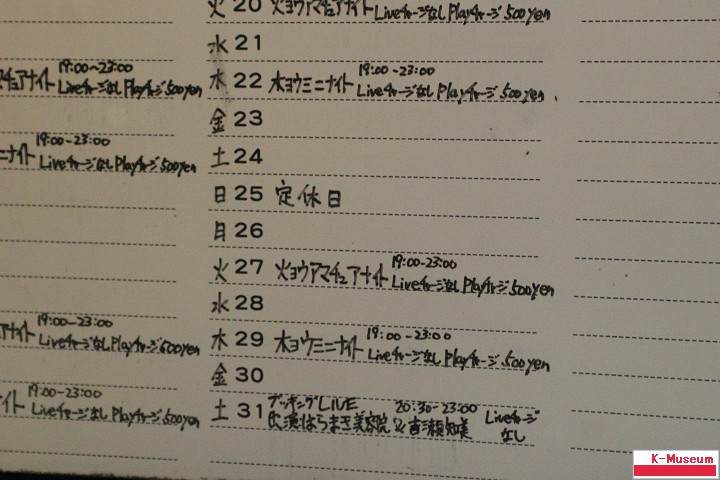 火 20 火ヨウアマチュアナイト Liveチャージなし Playチャージ 500yen
水 21
アナイト 19:00~23:00 Liveチャージなし Playチャージ 500yen
木 22 木ヨウミニナイト 19:00-23:00 Liveチャージなし Playチャージ 500yen
金 23
ニナイト 19:00-23:00 Liveチャージなし Playチャージ 500yen
土 24
日 25 定休日
月 26
火 27 火ヨウアマチュアナイト 19:00-23:00 Liveチャージなし Playチャージ 500yen
水 28
アナイト 19:00-23:00 Liveチャージなし Playチャージ 500yen
木 29 木ヨウミニナイト 19:00-23:00 Liveチャージなし Playチャージ 500yen
金 30
イト 19:00-23:00 Liveチャージなし Playチャージ 500yen
土 31 ブッキングLIVE 20:30-23:00 Liveチャージなし
出演:はらまき美容院 & 音瀬知美
K-Museum